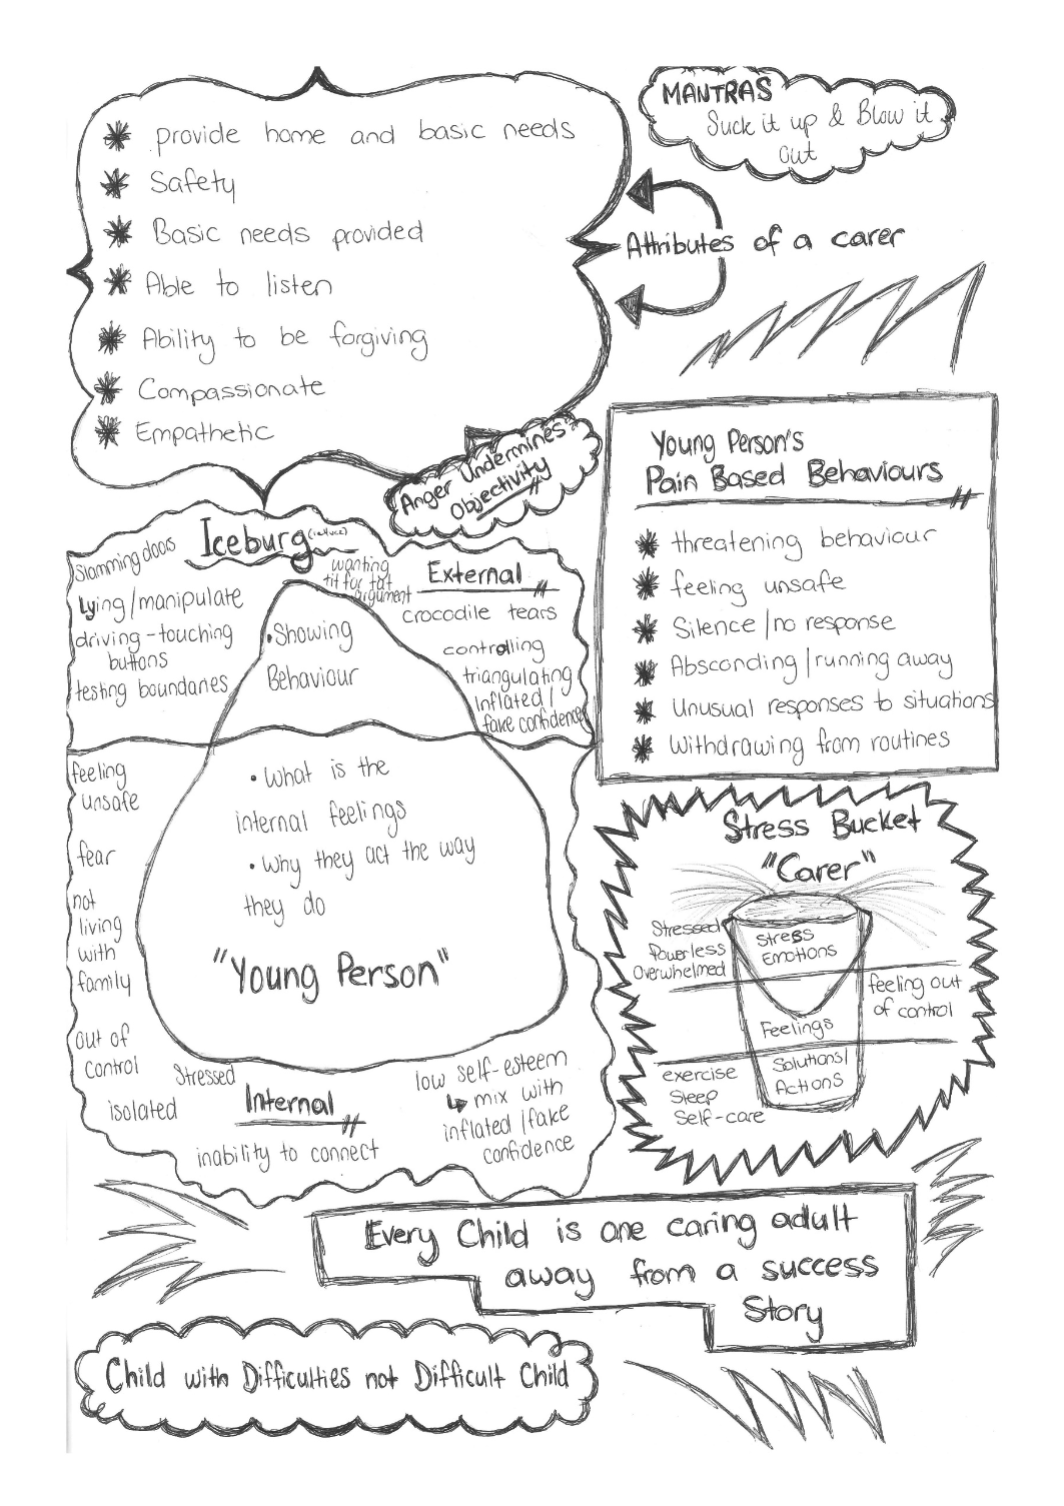 MANTRAS
Suck it up & Blow it
Out
* provide home and basic needs
* Safety
* Basic needs provided
* Able to listen
* Ability to be forgiving
* Compassionate
* Empathetic
Attributes of a carer
Anger Undermines
Objectivity
Young Person's
Pain Based Behaviours
* threatening behaviour
* feeling unsafe
* Silence / no response
* Absconding / running away
* Unusual responses to situations
* Withdrawing from routines
Iceburg
External
Slamming doos
Lying/manipulate
driving - touching
buttons
testing boundaries
wanting
tit for tat
argument
crocodile tears
controlling
triangulating
Inflated /
fake confidence
• Showing
Behaviour
• What is the
internal feelings
• Why they act the way
they do
"Young Person"
feeling
unsafe
fear
not
living
with
family
out of
control
Stressed
isolated
Internal
inability to connect
low self-esteem
↳ mix with
inflated / fake
confidence
Stress Bucket
"Carer"
Stressed
Powerless
Overwhelmed
Stress
Emotions
feeling out
of control
Feelings
Solutions/
Actions
exercise
Sleep
Self-care
Every Child is one caring adult
away from a success
Story
Child with Difficulties not Difficult Child